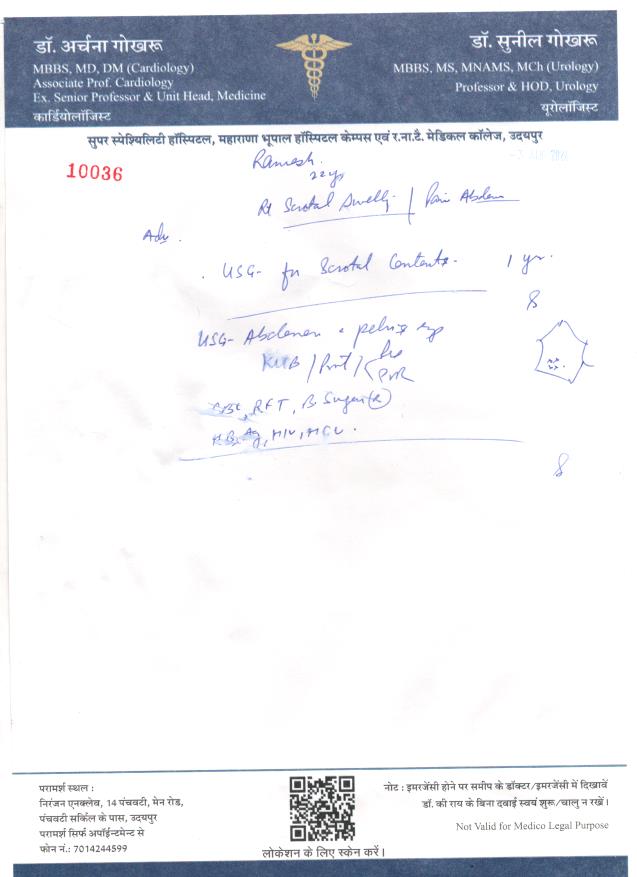 डॉ. अर्चना गोखरू
MBBS, MD, DM (Cardiology)
Associate Prof. Cardiology
Ex. Senior Professor & Unit Head, Medicine
कार्डियोलॉजिस्ट
डॉ. सुनील गोखरू
MBBS, MS, MNAMS, MCh (Urology)
Professor & HOD, Urology
यूरोलॉजिस्ट
सुपर स्पेश्यिलिटी हॉस्पिटल, महाराणा भूपाल हॉस्पिटल केम्पस एवं र.ना.टै. मेडिकल कॉलेज, उदयपुर
10036
Ramesh.
22 yr
Rt Scrotal Swelling / Pain Abdomen
Adv.
USG- for Scrotal Contents. 1 yr.
USG- Abdomen & pelvis
KUB / Prost / Pre
PVR
CBC, RFT, B. Sugar (R)
HBsAg, HIV, HCV.
परामर्श स्थल :
निरंजन एनक्लेव, 14 पंचवटी, मेन रोड,
पंचवटी सर्किल के पास, उदयपुर
परामर्श सिर्फ अपॉईन्टमेन्ट से
फोन नं.: 7014244599
लोकेशन के लिए स्केन करें।
नोट : इमरजेंसी होने पर समीप के डॉक्टर/इमरजेंसी में दिखावें
डॉ. की राय के बिना दवाई स्वयं शुरू/चालु न रखें।
Not Valid for Medico Legal Purpose